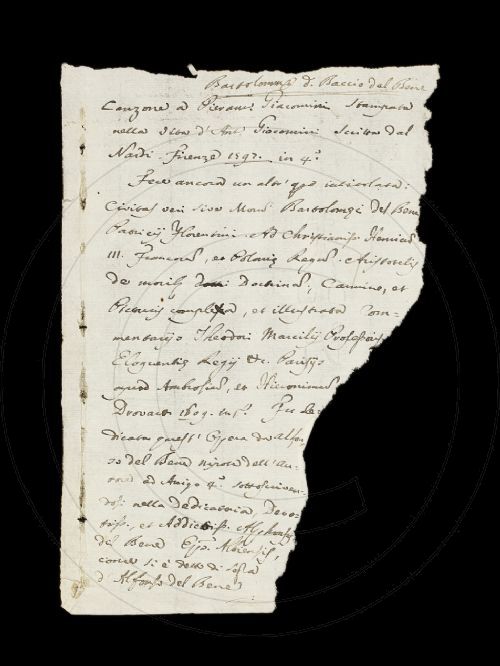 Bartolommeo di Baccio del Bene
Canzone a Piero Giacomini stampata
nella vita d'Ant. Giacomini scritta dal
Nardi. Firenze 1597. in 4.º
Fece ancora un altr' intitolata:
Civitas veri sive Morū Bartolomei Del Bene
Patricii Florentini. Ad Christianiss. Henricum
III. Francor., et Poloniæ Regem. Aristotelis
de moribus Doctrinā, Carmine, et
Picturis complexa, et illustrata Com-
mentariis Theodori Marcilii Professoris
Eloquentiæ Regii &c. Parisiis
apud Ambrosium, et Hieronimum
Drovart 1609. Fu De-
dicata quest' Opera da Alfon-
so del Bene nipote dell' Au-
tore ad Arrigo 4.º sottoscriven-
dosi nella Dedicatoria, Devo-
tiss., et Addictiss. Alphonsus
del Bene Episc. Albiensis,
come si è detto di sopra
d'Alfonso del Bene